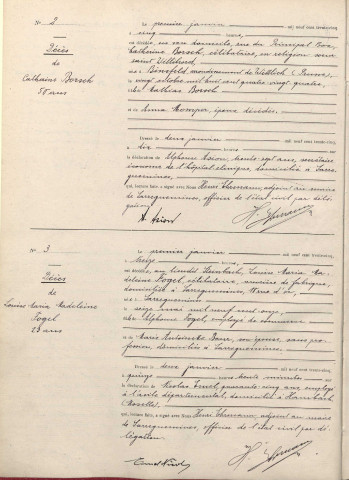 N° 2
Décès
de
Catherine Borsch
58 ans
Le premier janvier mil neuf cent trente-cinq,
à cinq heures
est décédée, en son domicile, rue du Principal Box,
Catherine Borsch, célibataire, en religion sœur
saint Willibord,
née à Binsfeld, arrondissement de Wittlich (Prusse)
le vingt octobre mil huit cent quatre-vingt-quatre,
de Mathias Borsch
et de Anna Momper, époux décédés.
Dressé le deux janvier mil neuf cent trente-cinq,
à dix heures
sur la déclaration de Alphonse Sison, trente sept ans, secrétaire
économe de l'hôpital clinique, domicilié à Sarre-
guemines,
qui, lecture faite, a signé avec Nous Henri Ehrmann, adjoint au maire
de Sarreguemines, officier de l'état civil par délé-
gation.
N° 3
Décès
de
Louise Maria Madeleine
Vogel
23 ans
Le premier janvier mil neuf cent trente-cinq,
à seize heures
est décédée, au lieudit Steinbach, Louise Maria Ma-
deleine Vogel, célibataire, ouvrière de fabrique,
domiciliée à Sarreguemines,
née à Sarreguemines
le seize mai mil neuf cent onze,
de Alphonse Vogel, employé de commerce
et de Marie Antoinette Baur, son épouse, sans pro-
fession, domiciliés à Sarreguemines.
Dressé le deux janvier mil neuf cent trente-cinq,
à quinze heures trente minutes
sur la déclaration de Nicolas Ernst, quarante cinq ans, employé
à l'asile départemental, domicilié à
Moselle
qui, lecture faite, a signé avec Nous Henri Ehrmann, adjoint au maire
de Sarreguemines, officier de l'état civil par dé-
légation.